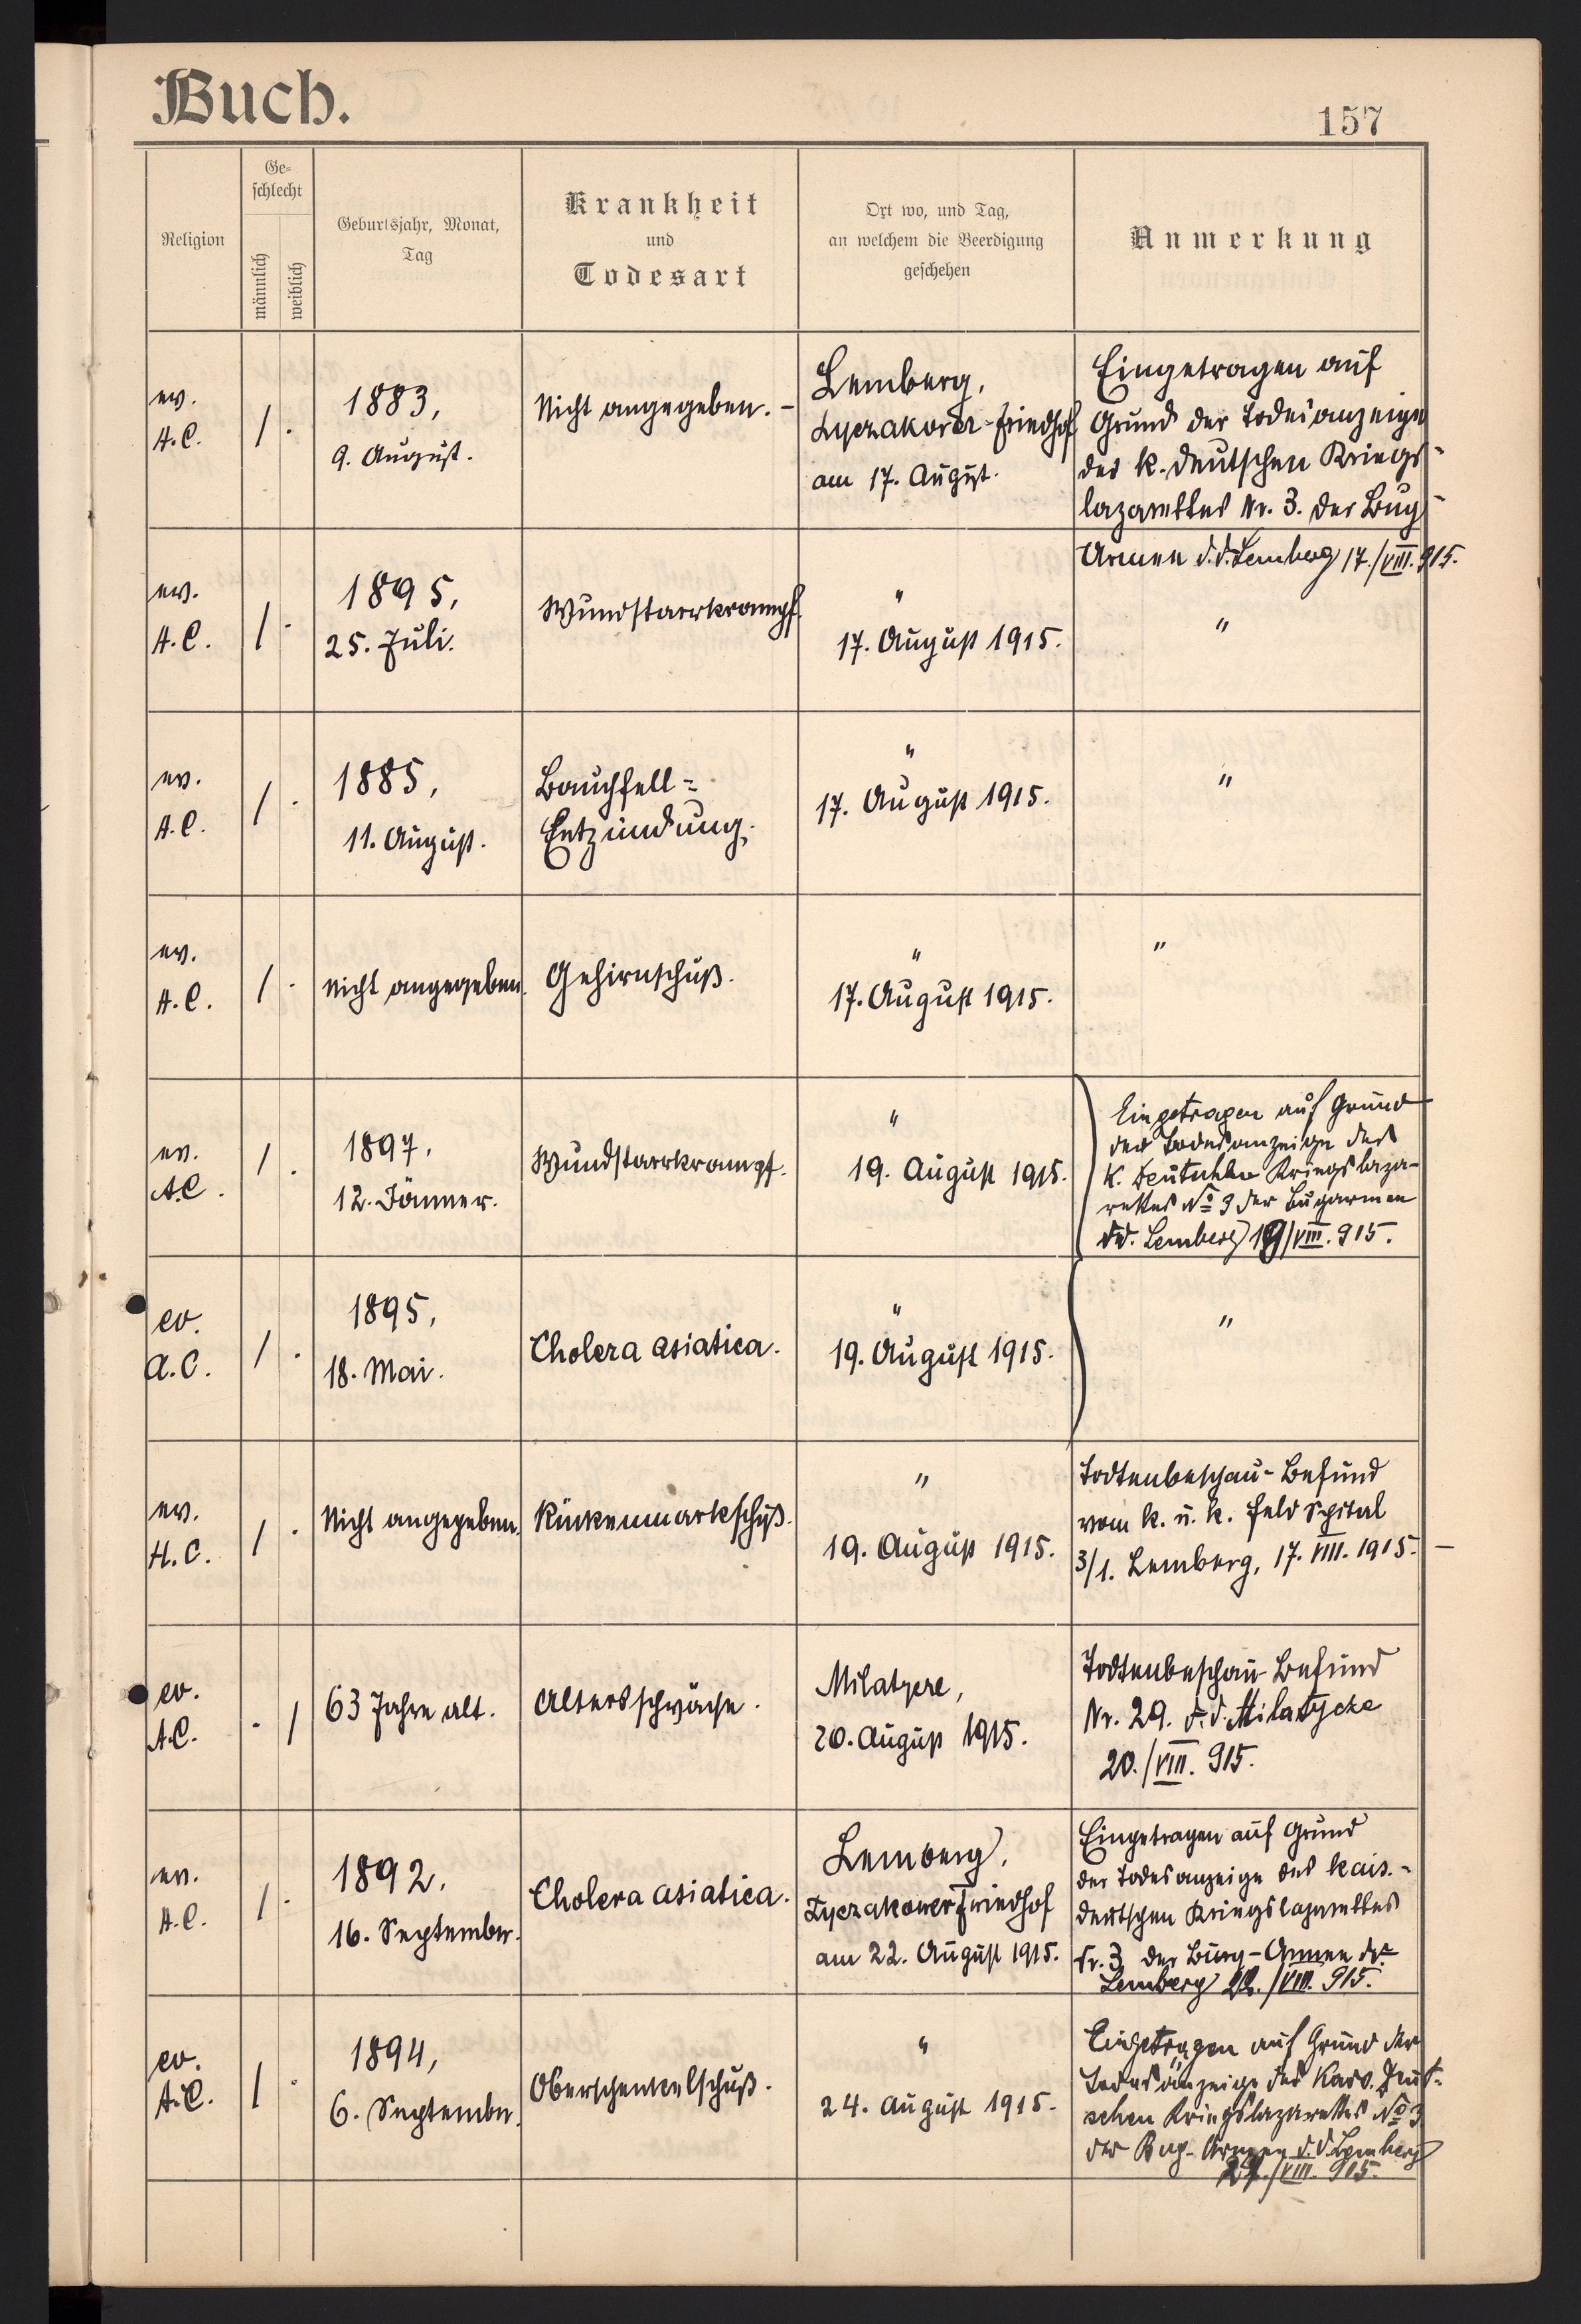 Buch.
157
Religion
Ge-
schlecht
männlich
weiblich
Geburtsjahr, Monat,
Tag
Krankheit
und
Todesart
Ort wo, und Tag,
an welchem die Beerdigung
geschehen
Anmerkung
ev.
A.C.
1.
1883,
9. August.
Nicht angegeben.-
Lemberg,
Lyczakower-Friedhof
am 17. August.
Eingetragen auf
Grund der Todesanzeige
des k. deutschen Kriegs-
lazarettes Nr. 3. der Bug-
Armee d.d. Lemberg 17./VIII. 915.
ev.
A.C.
1.
1895,
25. Juli.
Wundstarrkrampf.
"
17. August 1915.
"
ev.
A.C.
1.
1885,
11. August.
Bauchfell=
Entzündung.
"
17. August 1915.
"
ev.
A.C.
1.
nicht angegeben.
Gehirnschuß.
"
17. August 1915.
"
ev.
A.C.
1.
1897,
12. Jänner.
Wundstarrkrampf.
"
19. August 1915.
Eingetragen auf Grund
der Todesanzeige des
K. Deutschen Kriegslaza-
rettes No 3 der Bugarmee
dd. Lemberg 19/VIII. 915.
ev.
A.C.
1.
1895,
18. Mai.
Cholera asiatica.
"
19. August 1915.
"
ev.
H.C.
1.
Nicht angegeben.
Rückenmarkschuß.
"
19. August 1915.
Todtenbeschau-Befund
vom k. u. k. Feld Spital
3/1. Lemberg, 17. VIII. 1915.-
ev.
A.C.
. 1
63 Jahre alt.
Altersschwäche.
Milatycze,
20. August 1915.
Todtenbeschau Befund
Nr. 29. d.d. Milatycze
20./VIII. 915.
ev.
A.C.
1.
1892,
16. September.
Cholera asiatica.
Lemberg,
Lyczakower Friedhof
am 22. August 1915.
Eingetragen auf Grund
der Todesanzeige des kais.-
deutschen Kriegslazarettes
Nr. 3 der Bug-Armee dd.
Lemberg 22./VIII. 915.
ev.
A.C.
1.
1894,
6. September.
Oberschenkelschuß.
"
24. August 1915.
Eingetragen auf Grund der
Todesanzeige des Kais. Deut-
schen Kriegslazarettes No 3
der Bug-Armee d.d. Lemberg
/VIII. 915.